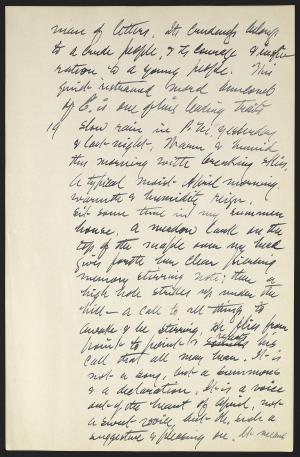 man of letters. Its crudeness belongs
to a crude people, & its courage & inspi-
ration to a young people. This
quiet restrained mood
of E. is one of his leading traits
19 Slow rain in P.M. yesterday
& last night. Warm & humid
this morning with breaking skies.
A typical moist April morning
warmth & humidity reign.
Sit some time in my summer
house. A meadow lark on the
top of the maple over my head
gives forth her clear piercing
memory stirring note; then a
high hole strikes up under the
hill - a call to all things to
awake & be stirring. He flies from
point to point & sounds repeats his
call that all may hear. It is
not a song, but a summons
& a declaration. It is a voice
out of the heart of April, not
a sweet voice, but Oh, such a
suggestive & pleasing one. It means